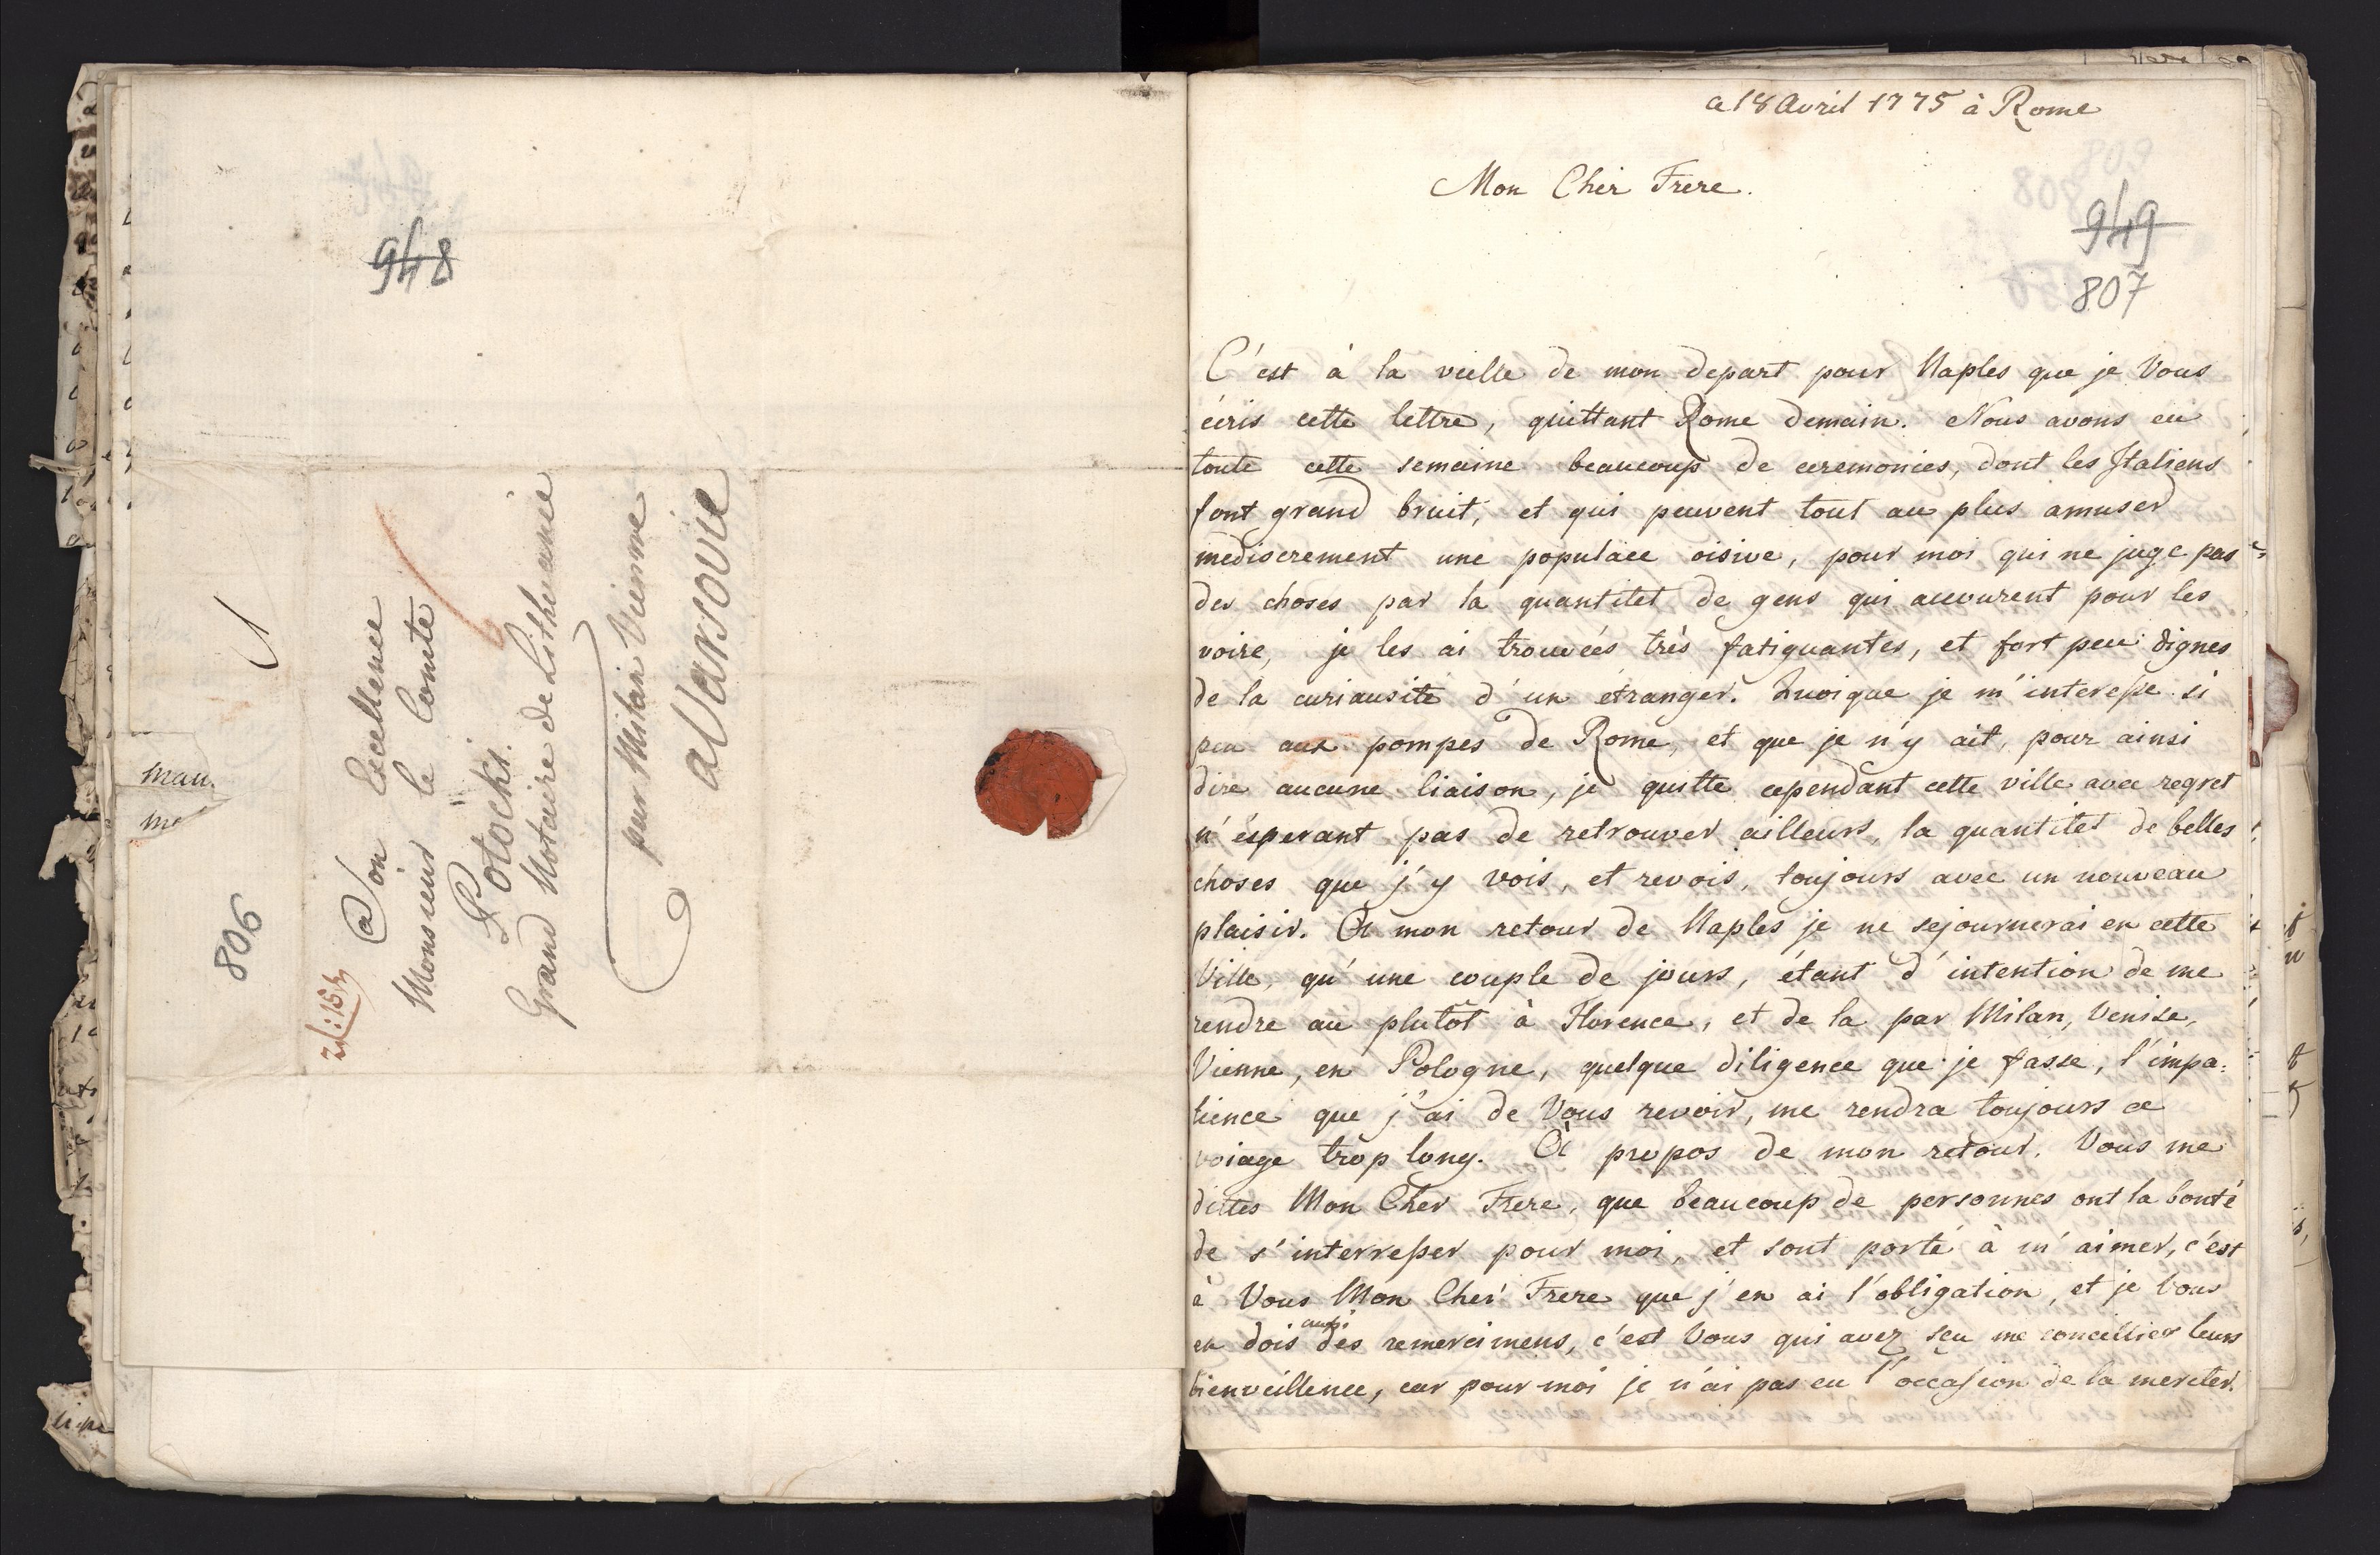 948
A Son Excellence
Monsieur le Comte
Potocki
Grand Notaire de Lithuanie
par Milan Vienne
a Varsovie
806
man.
me
a 18 Avril 1775 à Rome
Mon Cher Frere.
949
807
C'est à la veille de mon depart pour Naples que je Vous
écris cette lettre, quittant Rome demain. Nous avons eu
toute cette semaine beaucoup de ceremonies, dont les Italiens
font grand bruit, et qui peuvent tout au plus amuser
mediocrement une populace oisive, pour moi qui ne juge pas
des choses par la quantitet de gens qui accourent pour les
voire, je les ai trouvées très fatiguantes, et fort peu dignes
de la curiausité d'un étranger. Quoique je m'interesse si
peu aux pompes de Rome, et que je n'y ait, pour ainsi
dire aucune liaison, je quitte cependant cette ville avec regret
n'ésperant pas de retrouver ailleurs, la quantitet de belles
choses que j'y vois, et revois, toujours avec un nouveau
plaisir. A mon retour de Naples je ne sejournerai en cette
Ville, qu'une couple de jours, étant d'intention de me
rendre au plutôt à Florence, et de la par Milan, Venise,
Vienne, en Pologne, quelque diligence que je fasse, l'impa:
tience que j'ai de Vous revoir, me rendra toujours ce
voiage trop long. A propos de mon retour. Vous me
dittes Mon Cher Frere, que beaucoup de personnes ont la bonté
de s'interresser pour moi, et sont porté à m'aimer, c'est
à Vous Mon Cher Frere que j'en ai l'obligation, et je Vous
en dois aussi des remercimens, c'est Vous qui avez sçu me concillier leurs
bienveillence, car pour moi je n'ai pas eu l'occasion de la meriter.